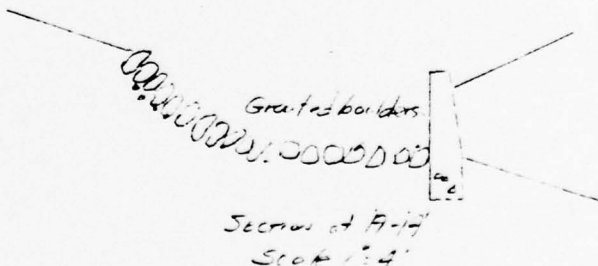 Grouted boulders
Section at A-A
Scale 1"=4'